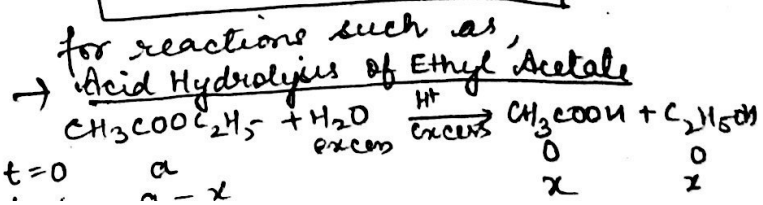 for reactions such as,
→ Acid Hydrolysis of Ethyl Acetate
CH3COOC2H5 + H2O H+ CH3COOH + C2H5OH
excess excess
t=0 a 0 0
a - x x x